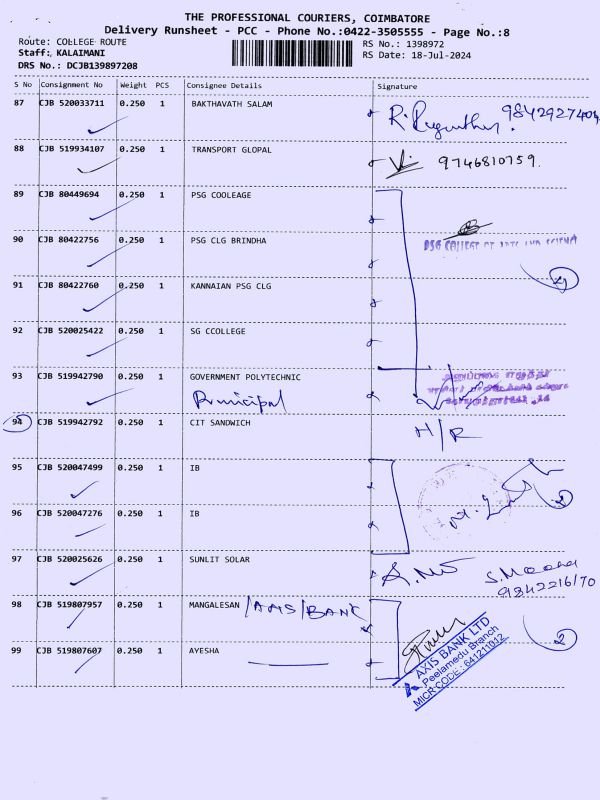 THE PROFESSIONAL COURIERS, COIMBATORE
Delivery Runsheet - PCC - Phone No.:0422-3505555 - Page No.:8
Route: COLLEGE ROUTE
RS No.: 1398972
Staff: KALAIMANI
RS Date: 18-Jul-2024
DRS No.: DCJB139897208
S No Consignment No Weight PCS Consignee Details Signature
87 CJB 520033711 0.250 1 BAKTHAVATH SALAM
88 CJB 519934107 0.250 1 TRANSPORT GLOPAL 9746810759.
89 CJB 80449694 0.250 1 PSG COOLEAGE
90 CJB 80422756 0.250 1 PSG CLG BRINDHA PSG COLLEGE OF ARTS AND SCIENCE
91 CJB 80422760 0.250 1 KANNAIAN PSG CLG
4
92 CJB 520025422 0.250 1 SG CCOLLEGE
93 CJB 519942790 0.250 1 GOVERNMENT POLYTECHNIC
94 CJB 519942792 0.250 1 CIT SANDWICH H/R
95 CJB 520047499 0.250 1 IB
2
96 CJB 520047276 0.250 1 IB
97 CJB 520025626 0.250 1 SUNLIT SOLAR
98 CJB 519807957 0.250 1 MANGALESAN /AXIS/BANK
2
99 CJB 519807607 0.250 1 AYESHA
AXIS BANK LTD
Peelamedu Branch
MICR CODE: 641211012